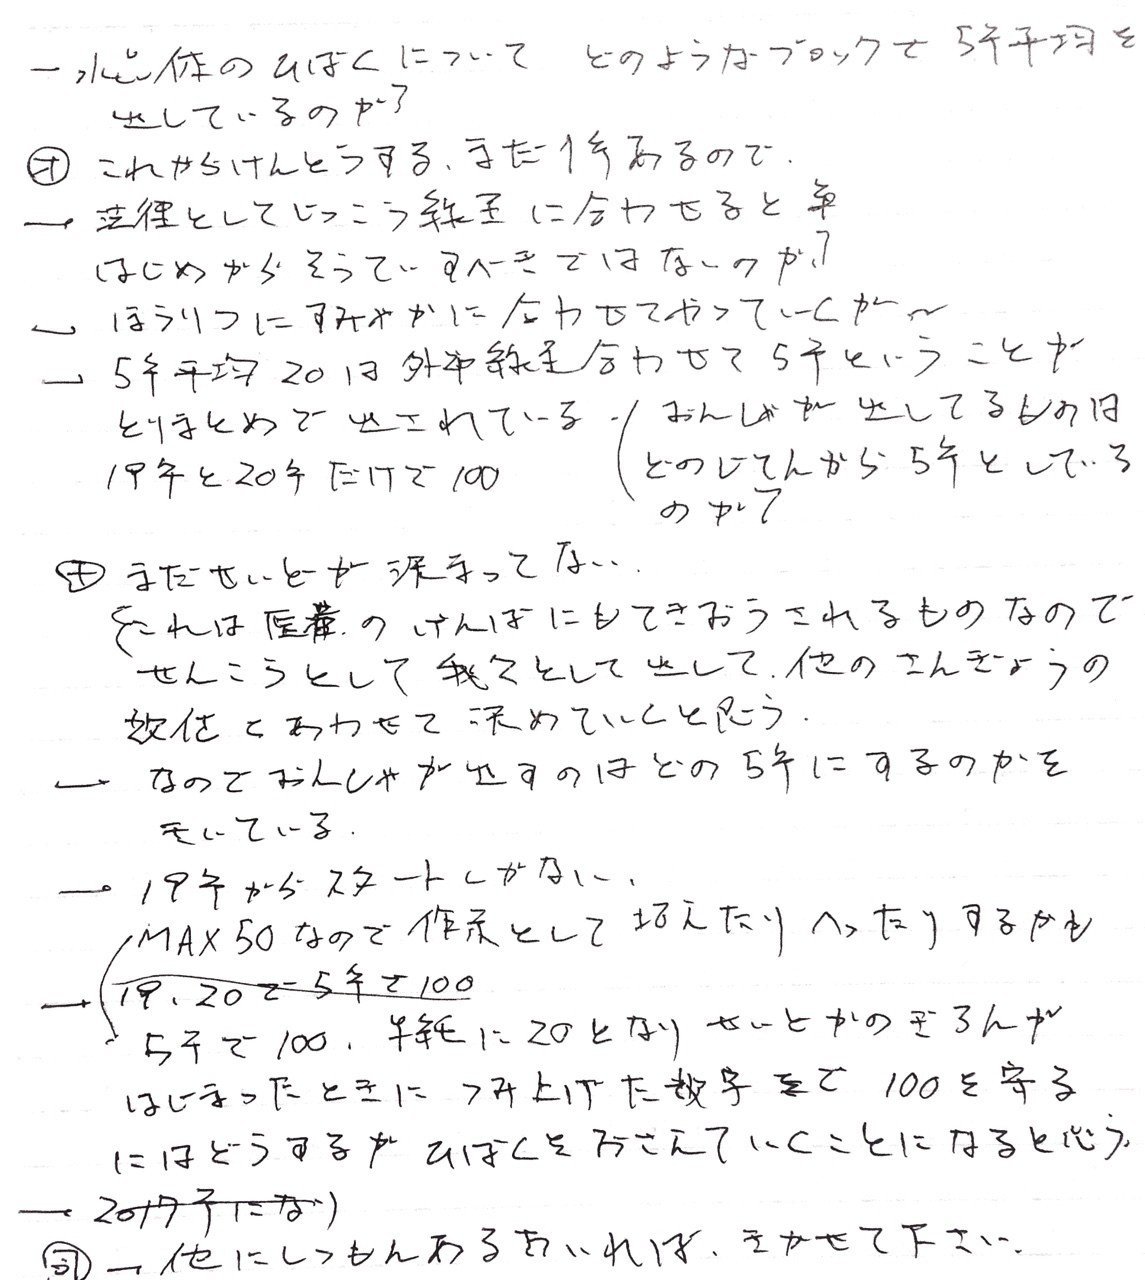 → 水晶体のひばくについて どのようなブロックで 5年平均を
出しているのか?
㋔ これからけんとうする、まだ1年あるので、
→ 法律としてじっこう線量に合わせると
はじめからそうていすべきではないのか?
→ ほうりつにすみやかに合わせてやっていくが〜
→ 5年平均20は 線量合わせて5年ということが
とりまとめで出されている。
19年と20年だけで100
おんしゃが出してるものは
どのじてんから5年としている
のか?
まだせいどが深まってない、
これは医療のげんばにもてきおうされるものなので
せんこうとして我々として出して、他のさんぎょうの
数値とあわせて深めていくと思う。
→ なのでおんしゃが出すのはどの5年にするのかを
きいている。
→ 19年からスタートしかない、
MAX50なので作業として増えたりへったりするかも
→ 19、20で5年で100
5年で100、単純に20となり せいどかのぎろんが
はじまったときに つみ上げた数字まで 100を守る
にはどうするか ひばくをおさえていくことになると思う。
→ 2017年になり
㊂ → 他にしつもんあるあいれば、きかせて下さい。